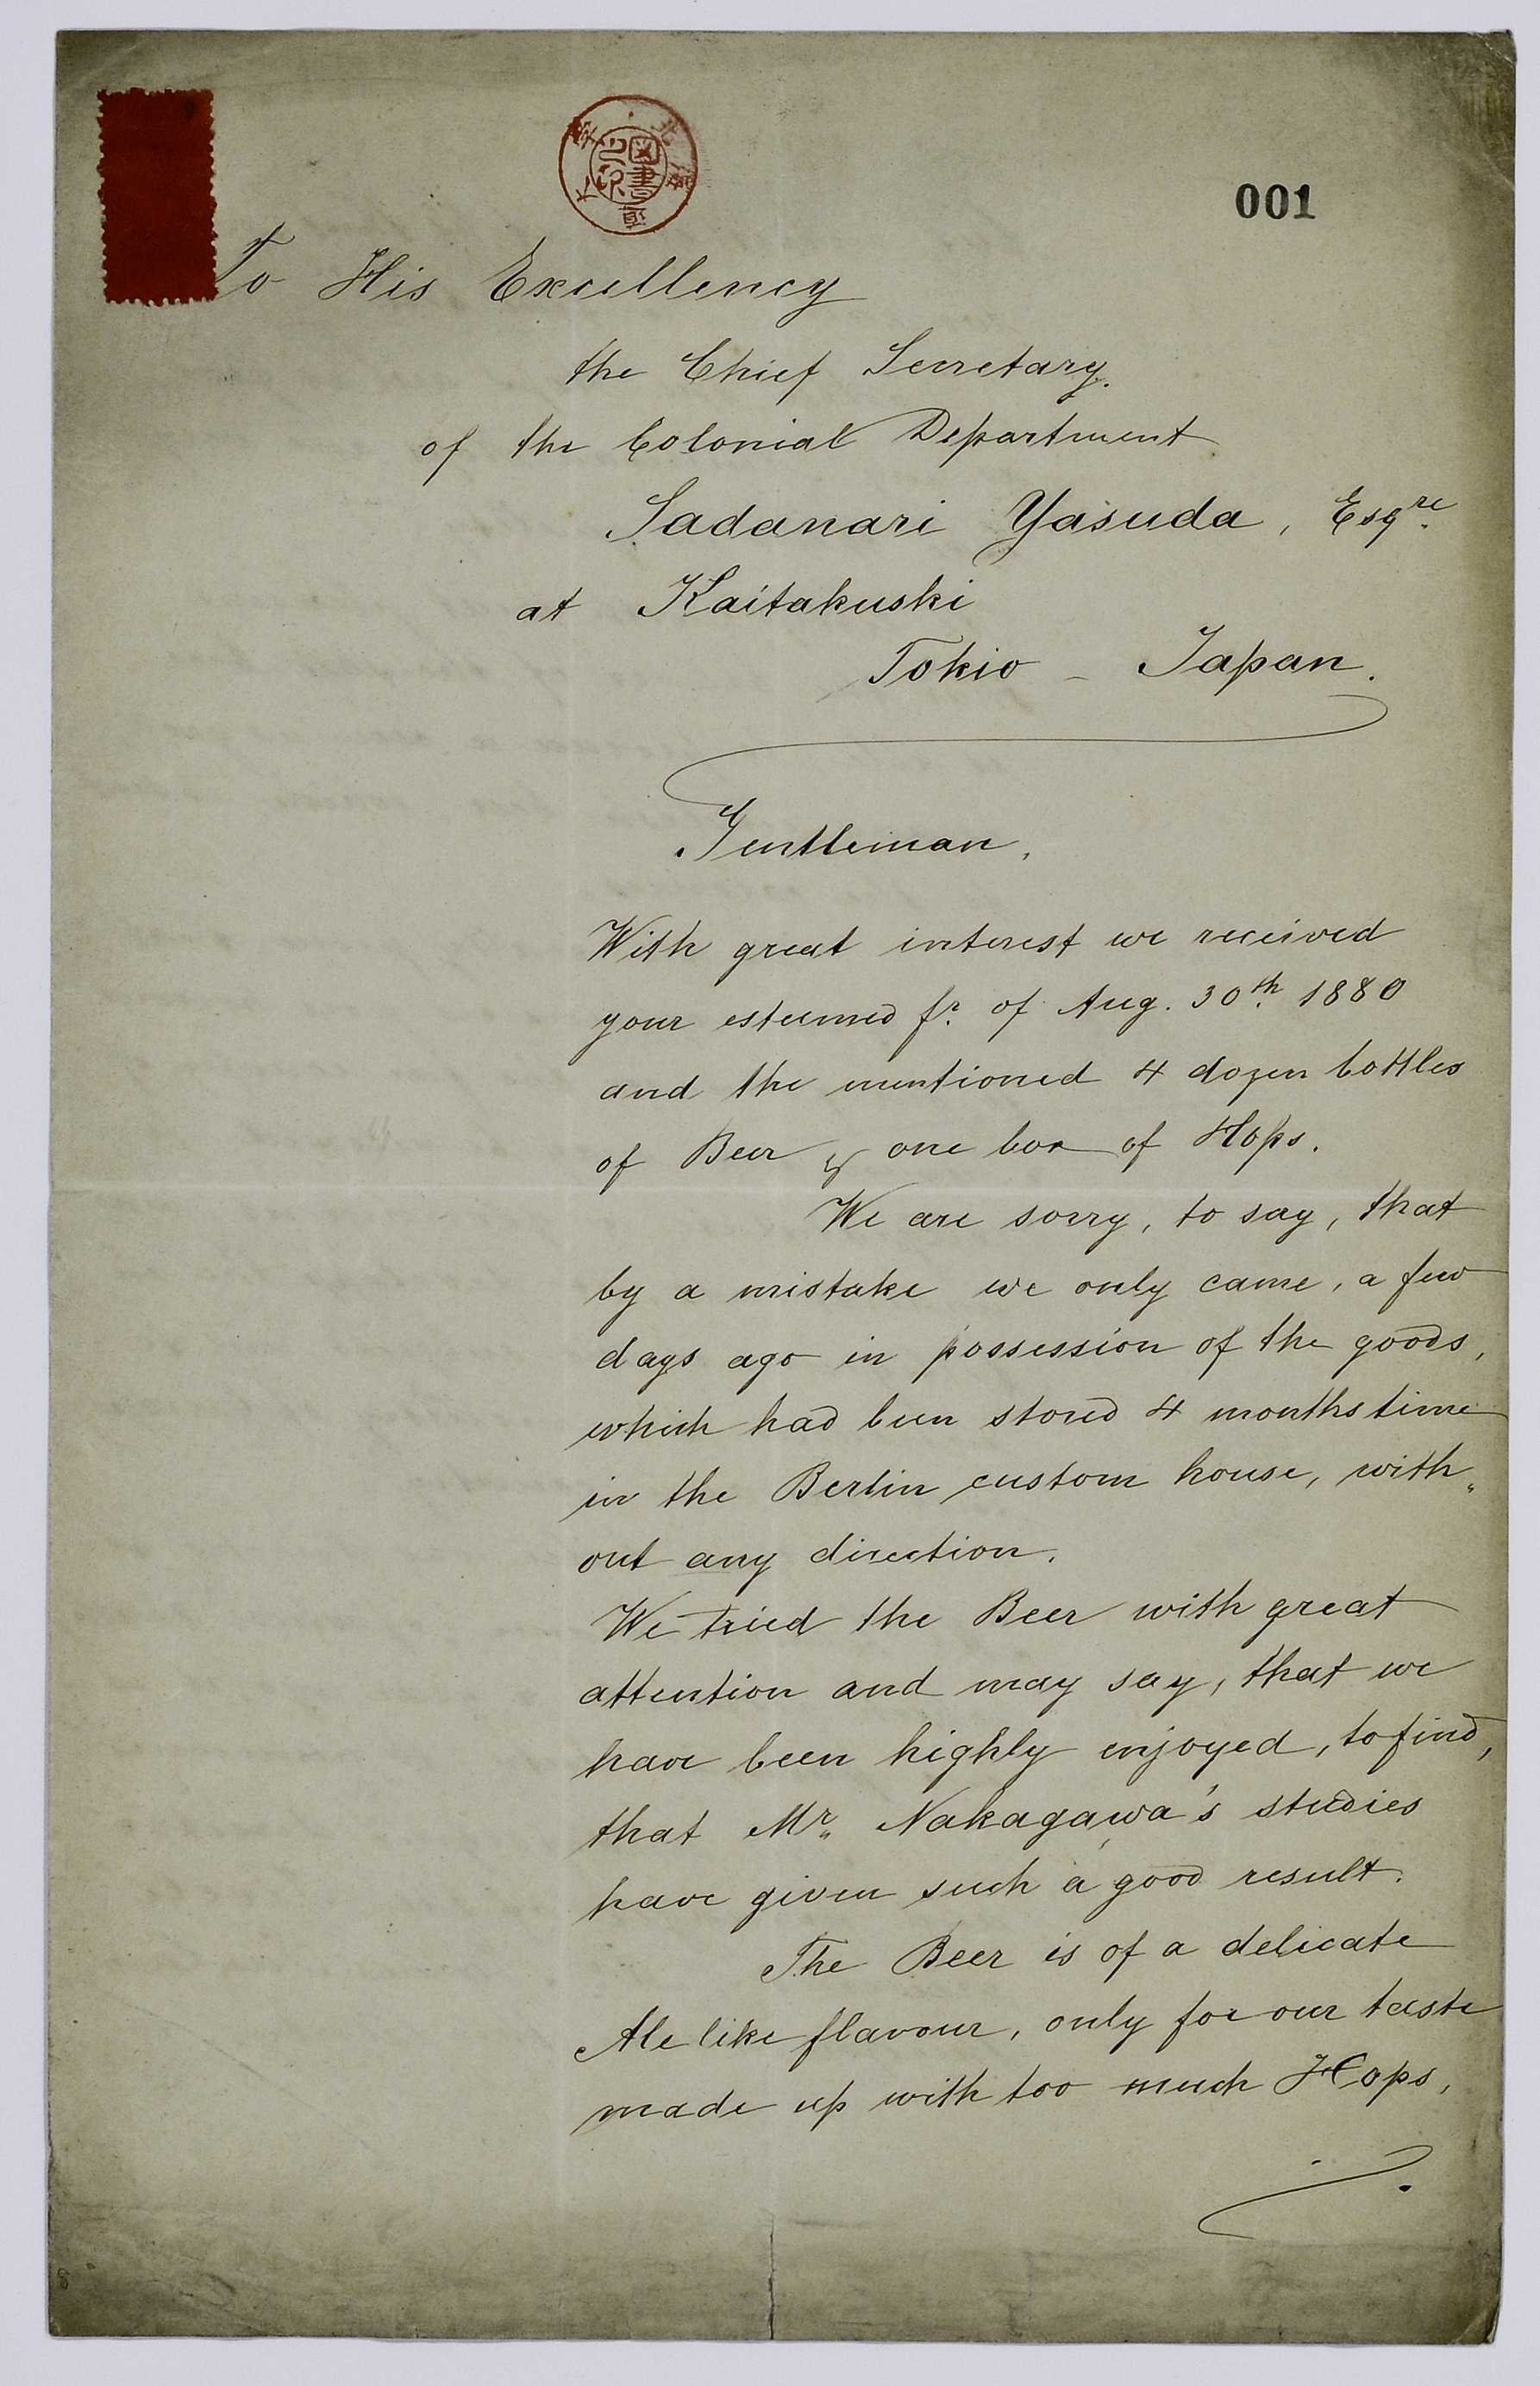 001
To His Excellency
the Chief Secretary.
of the Colonial Department
Sadanari Yasuda, Esqre.
at Kaitakuski
Tokio – Japan.
Gentleman,
With great interest we received
your esteemed fr. of Aug. 30th. 1880
and the mentioned 4 dozen bottles
of Beer & one box of Hops.
We are sorry, to say, that
by a mistake we only came, a few
days ago in possession of the goods,
which had been stored 4 months time
in the Berlin custom house, with„
out any direction.
We tried the Beer with great
attention and may say, that we
have been highly enjoyed, to find,
that Mr„ Nakagawa's studies
have given such a good result.
The Beer is of a delicate
Ale like flavour, only for our taste
made up with too much Hops,